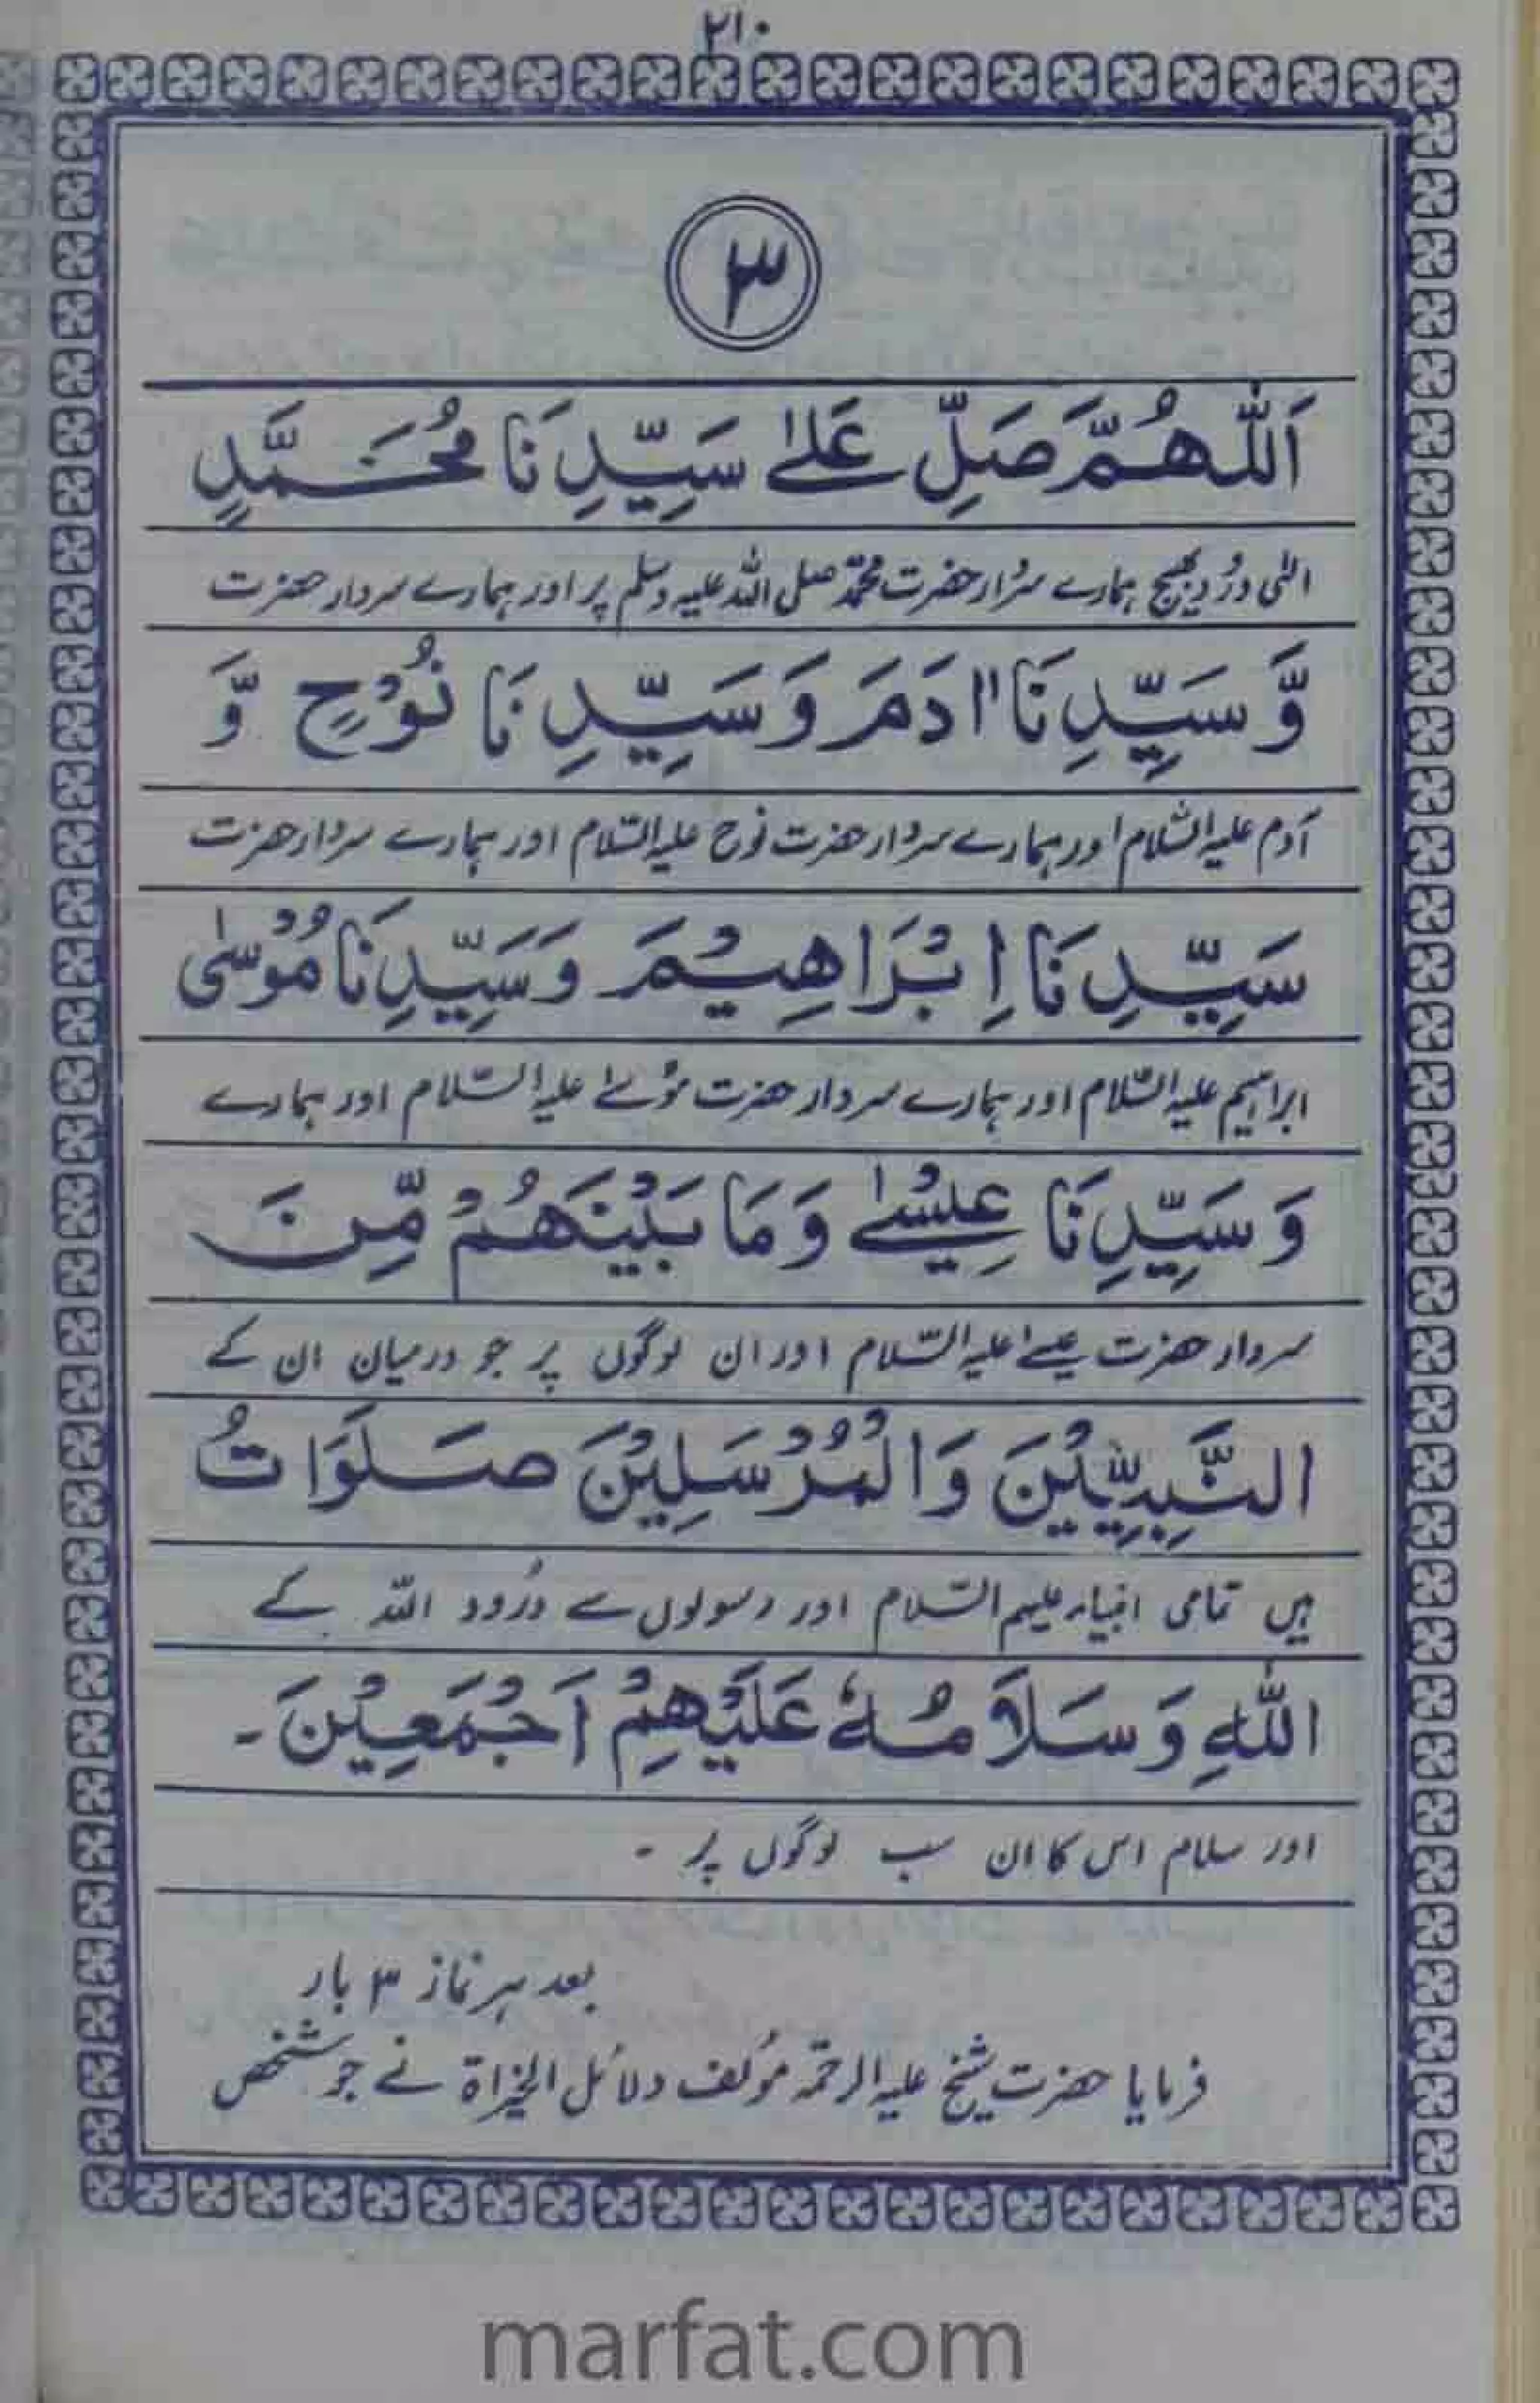 ۲۱۰
۳
اَللّٰهُمَّ صَلِّ عَلٰے سَيِّدِنَا مُحَمَّدٍ
الٰہی درُود بھیج ہمارے سردار حضرت محمّد صلی اللہ علیہ وسلم پر اور ہمارے سردار حضرت
وَّ سَيِّدِنَا اٰدَمَ وَ سَيِّدِنَا نُوْحٍ وَّ
آدم علیہ السّلام اور ہمارے سردار حضرت نوح علیہ السّلام اور ہمارے سردار حضرت
سَيِّدِنَا اِبْرَاهِيْمَ وَ سَيِّدِنَا مُوْسٰى
ابراہیم علیہ السّلام اور ہمارے سردار حضرت موُسےٰ علیہ السّلام اور ہمارے
وَ سَيِّدِنَا عِيْسٰے وَ مَا بَيْنَهُمْ مِّنَ
سردار حضرت عیسےٰ علیہ السّلام اور ان لوگوں پر جو درمیان ان کے
النَّبِيِّيْنَ وَالْمُرْسَلِيْنَ صَلَوَاتُ
ہیں تمامی انبیاء علیہم السّلام اور رسولوں سے درُود اللّٰہ کے
اللّٰهِ وَ سَلَامُهٗ عَلَيْهِمْ اَجْمَعِيْنَ ۔
اور سلام اس کا ان سب لوگوں پر ۔
بعد ہر نماز ۳ بار
فرمایا حضرت شیخ علیہ الرحمّہ مؤلف دلائل الخیراة نے جو شخص
marfat.com